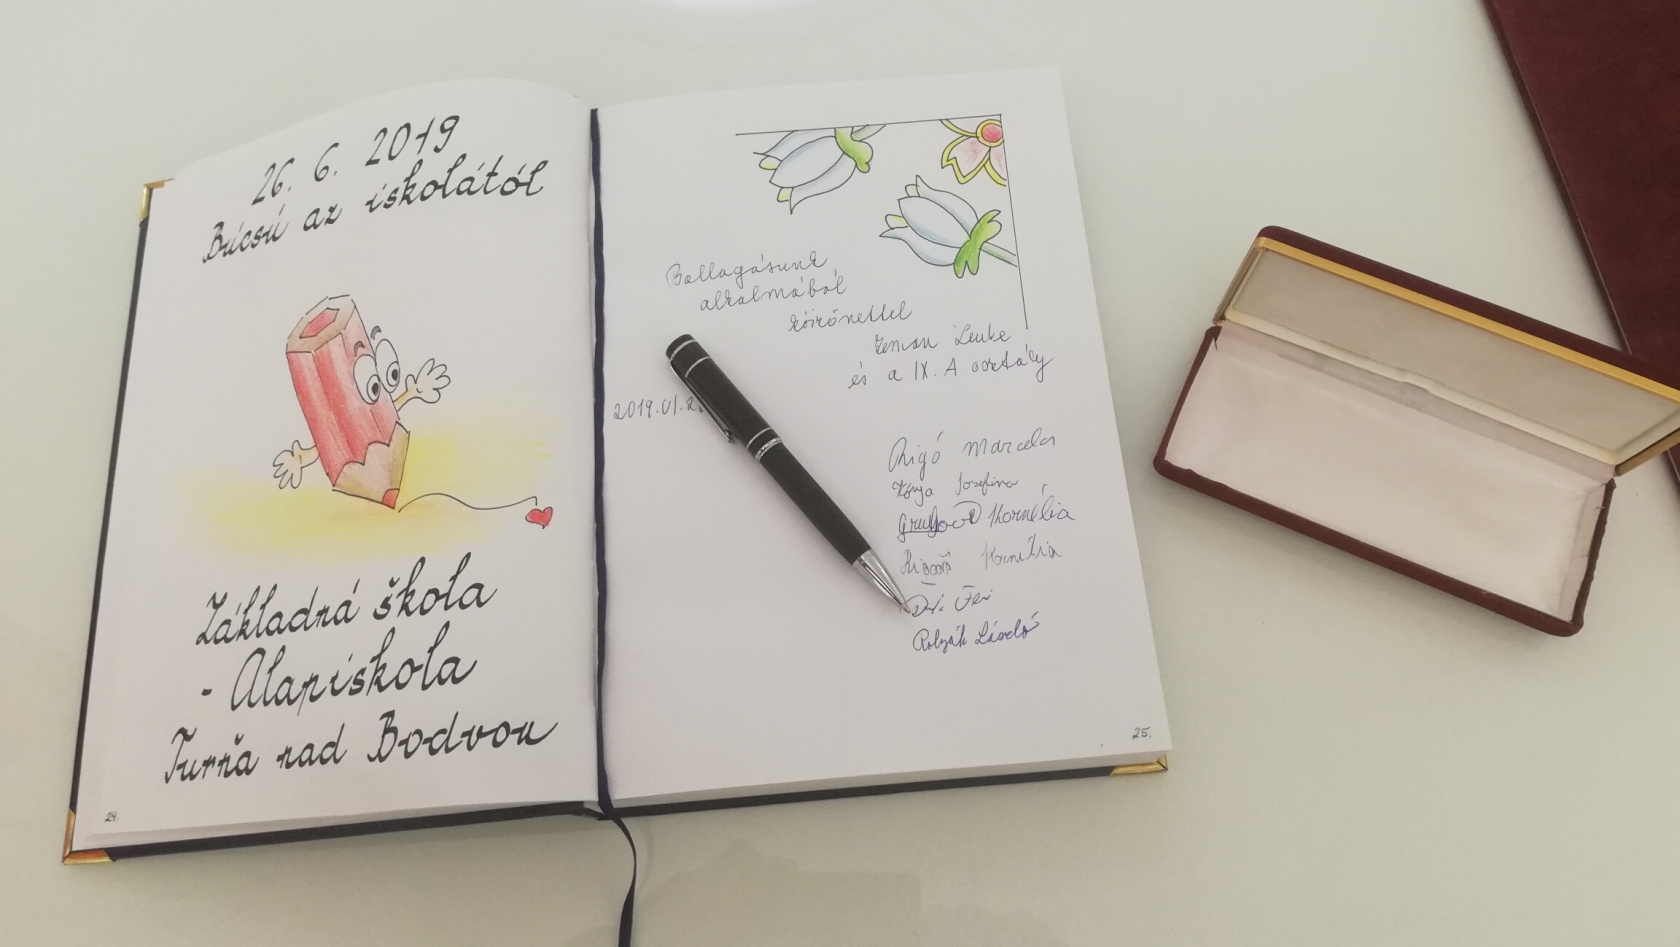 26. 6. 2019
Búcsú az iskolától
Základná škola
- Alapiskola
Turňa nad Bodvou
24.
Ballagásunk
alkalmából
Lenke
és a IX. A osztály
2019.VI.2
Rigó Marcela
Jozefina
Kornélia
Kornélia
Polyák László
25.